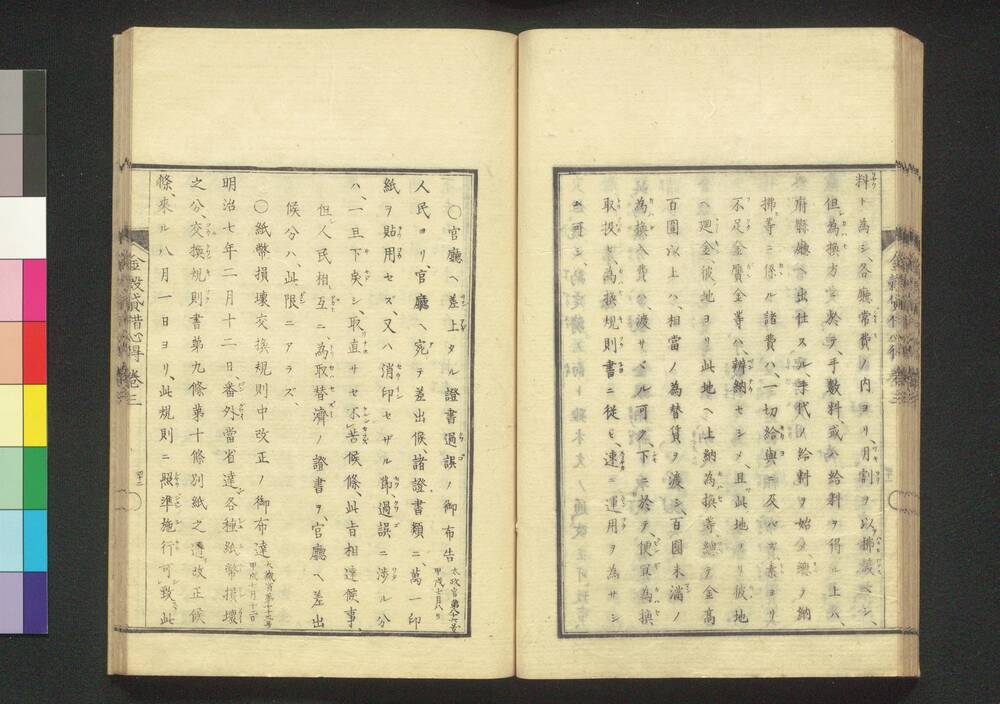 料ト為シ、各廳常費ノ内ヨリ、月割ヲ以拂渡ベシ、
但為換方ニ於テ、手數料、或ハ給料ヲ得ル上ハ、
府縣廳ヘ出仕スル、手代ノ給料ヲ始メ、總テ納
拂等ニ係ル諸費ハ、一切給與ニ及バズ、素ヨリ
不足金贋金等ハ、辨納セシメ、且此地ヨリ彼地
ヘ廻金彼地ヨリ此地ヘ上納為換等總テ金高
百圓以上ハ、相當ノ為替賃ヲ渡シ、百圓未滿ノ
為換入費ハ渡サヾル可ク、下ニ於テ、便宜為換
取扱ヒ、為換規則書ニ從ヒ、速ニ運用ヲ為サシ
ム可シ、
〇官廳ヘ差上タル證書過誤ノ御布告
人民ヨリ官廳ヘ宛テ差出候、諸證書類ニ、萬一印
紙ヲ貼用セズ、又ハ消印セザル等、過誤ニ渉ル分
ハ、一旦下戾シ、取直サセ不苦候條、此旨相達候事、
但人民相互ニ、為取替濟ノ證書ヲ、官廳ヘ差出
候分ハ、此限ニアラズ、
〇紙幣損壞交換規則中改正ノ御布達
明治七年二月十二日、番外當省達各種紙幣損壞
之分、交換規則書第九條第十條別紙之通改正候
條、來ル八月一日ヨリ、此規則ニ照準施行可致、此
金穀貸借心得 卷三